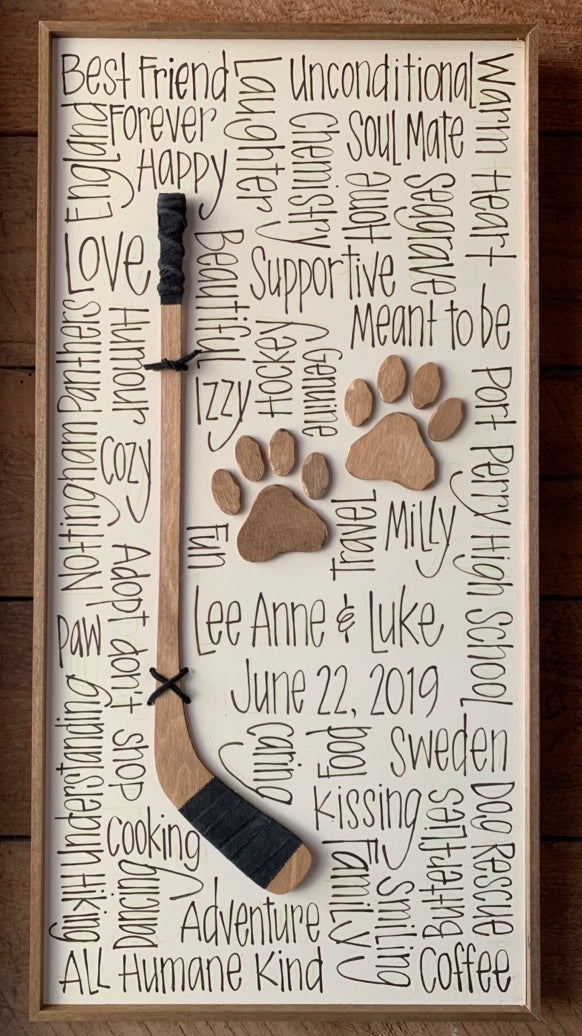 Best Friend
Laughter
Unconditional
Warm Heart
England
Forever
Chemistry
Soul Mate
Happy
Home
Seagrave
Love
Beautiful
Supportive
Meant to be
Nottingham Panthers
Humour
Hockey
Genuine
Izzy
Port Perry High School
Cozy
Fun
Travel
Milly
Adopt don't shop
Paw
Lee Anne & Luke
June 22, 2019
Understanding
Caring
Food
Sweden
Kissing
Butterflies
Dog Rescue
Cooking
Hiking
Dancing
Family
Smiling
Adventure
All Humane Kind
Coffee